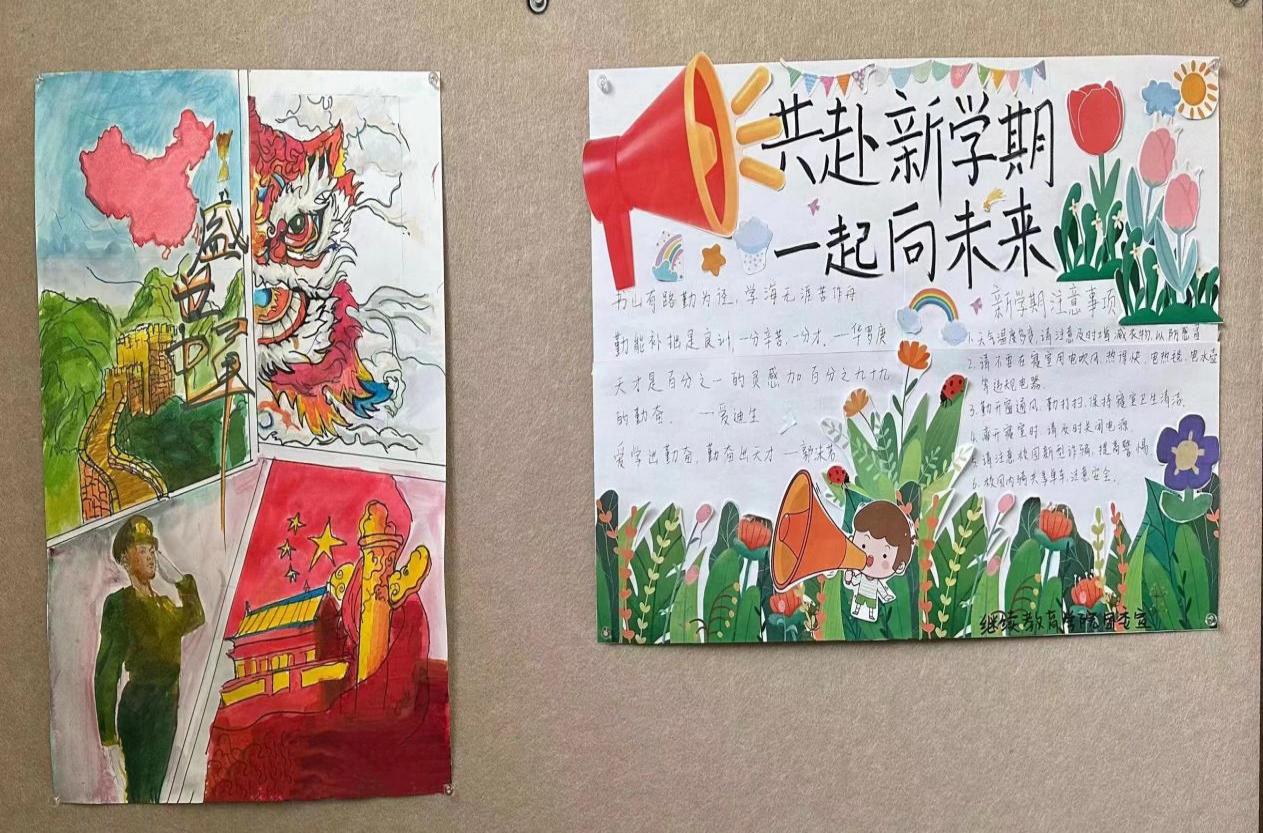 盛世中華
共赴新学期
一起向未来
书山有路勤为径，学海无涯苦作舟
勤能补拙是良训，一分辛苦一分才，一华罗庚
天才是百分之一的灵感加百分之九十九
的勤奋． 一爱迪生
爱学出勤奋，勤奋出天才 一郭沫若
新学期注意事项
1.天气温度多变，请注意及时增减衣物，以防感冒
2.请不要在寝室用电吹风，热得快，电热毯，电水壶
等违规电器
3.勤开窗通风，勤打扫，保持寝室卫生清洁.
4.离开寝室时，请及时关闭电源
5.请注意校园新型诈骗，提高警惕
6.校园内骑共享单车，注意安全.
继续教育学院团委宣